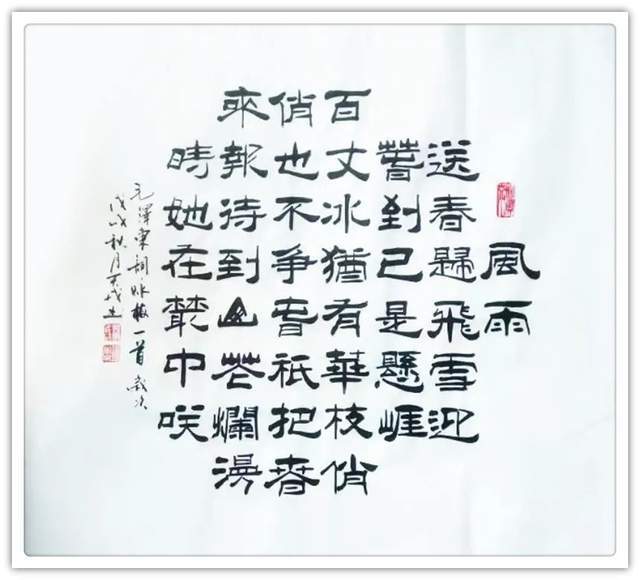 風雨
送春歸飛雪迎
春到已是懸崖
百丈冰猶有華枝俏
俏也不爭春祇把春
來報待到山花爛漫
時她在叢中咲
毛澤東詞咏梅一首歲次
戊戌秋月